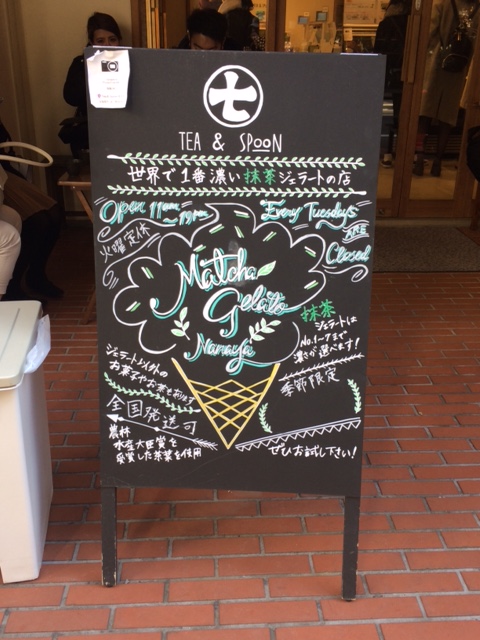 七
TEA & SPOON
世界で1番濃い抹茶ジェラートの店
Open 11am
~19pm
Every Tuesdays
are
Closed
火曜定休
Matcha
Gelato
Nanaya
抹茶
ジェラートは
No.1~7まで
濃さが選べます!
ジェラート以外の
お菓子やお茶も
季節限定
全国発送可
農林
水産大臣賞を
受賞した茶葉を使用
ぜひお試し下さい!